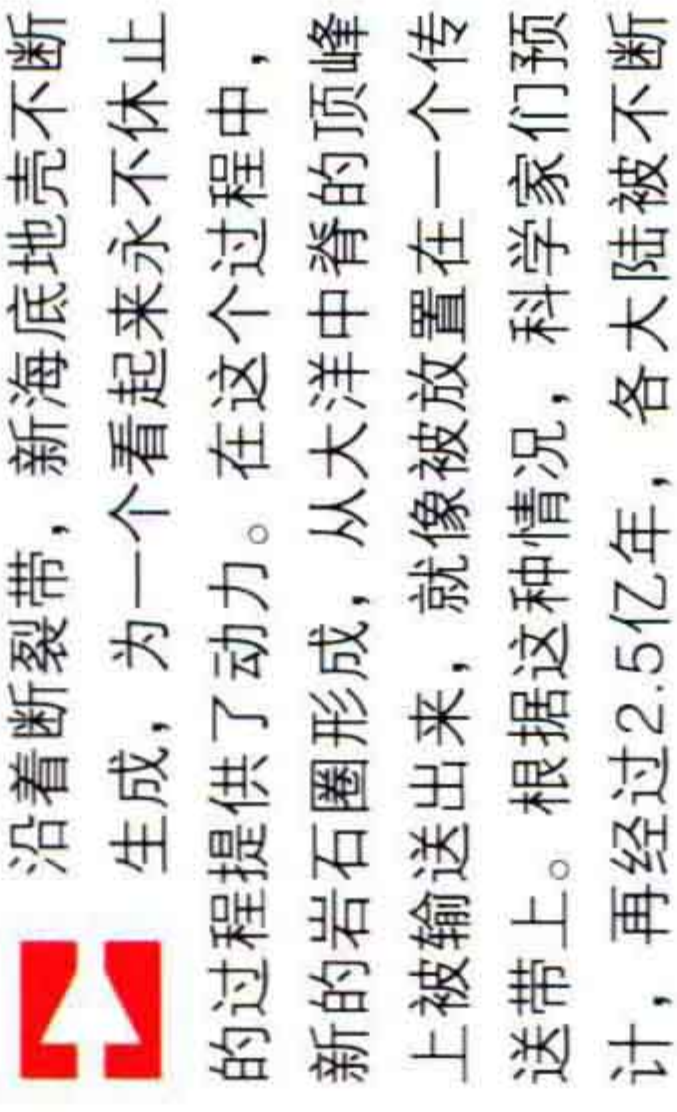 沿着断裂带，新海底地壳不断
生成，为一个看起来永不休止
的过程提供了动力。在这个过程中，
新的岩石圈形成，从大洋中脊的顶峰
上被输送出来，就像被放置在一个传
送带上。根据这种情况，科学家们预
计，再经过2.5亿年，各大陆被不断